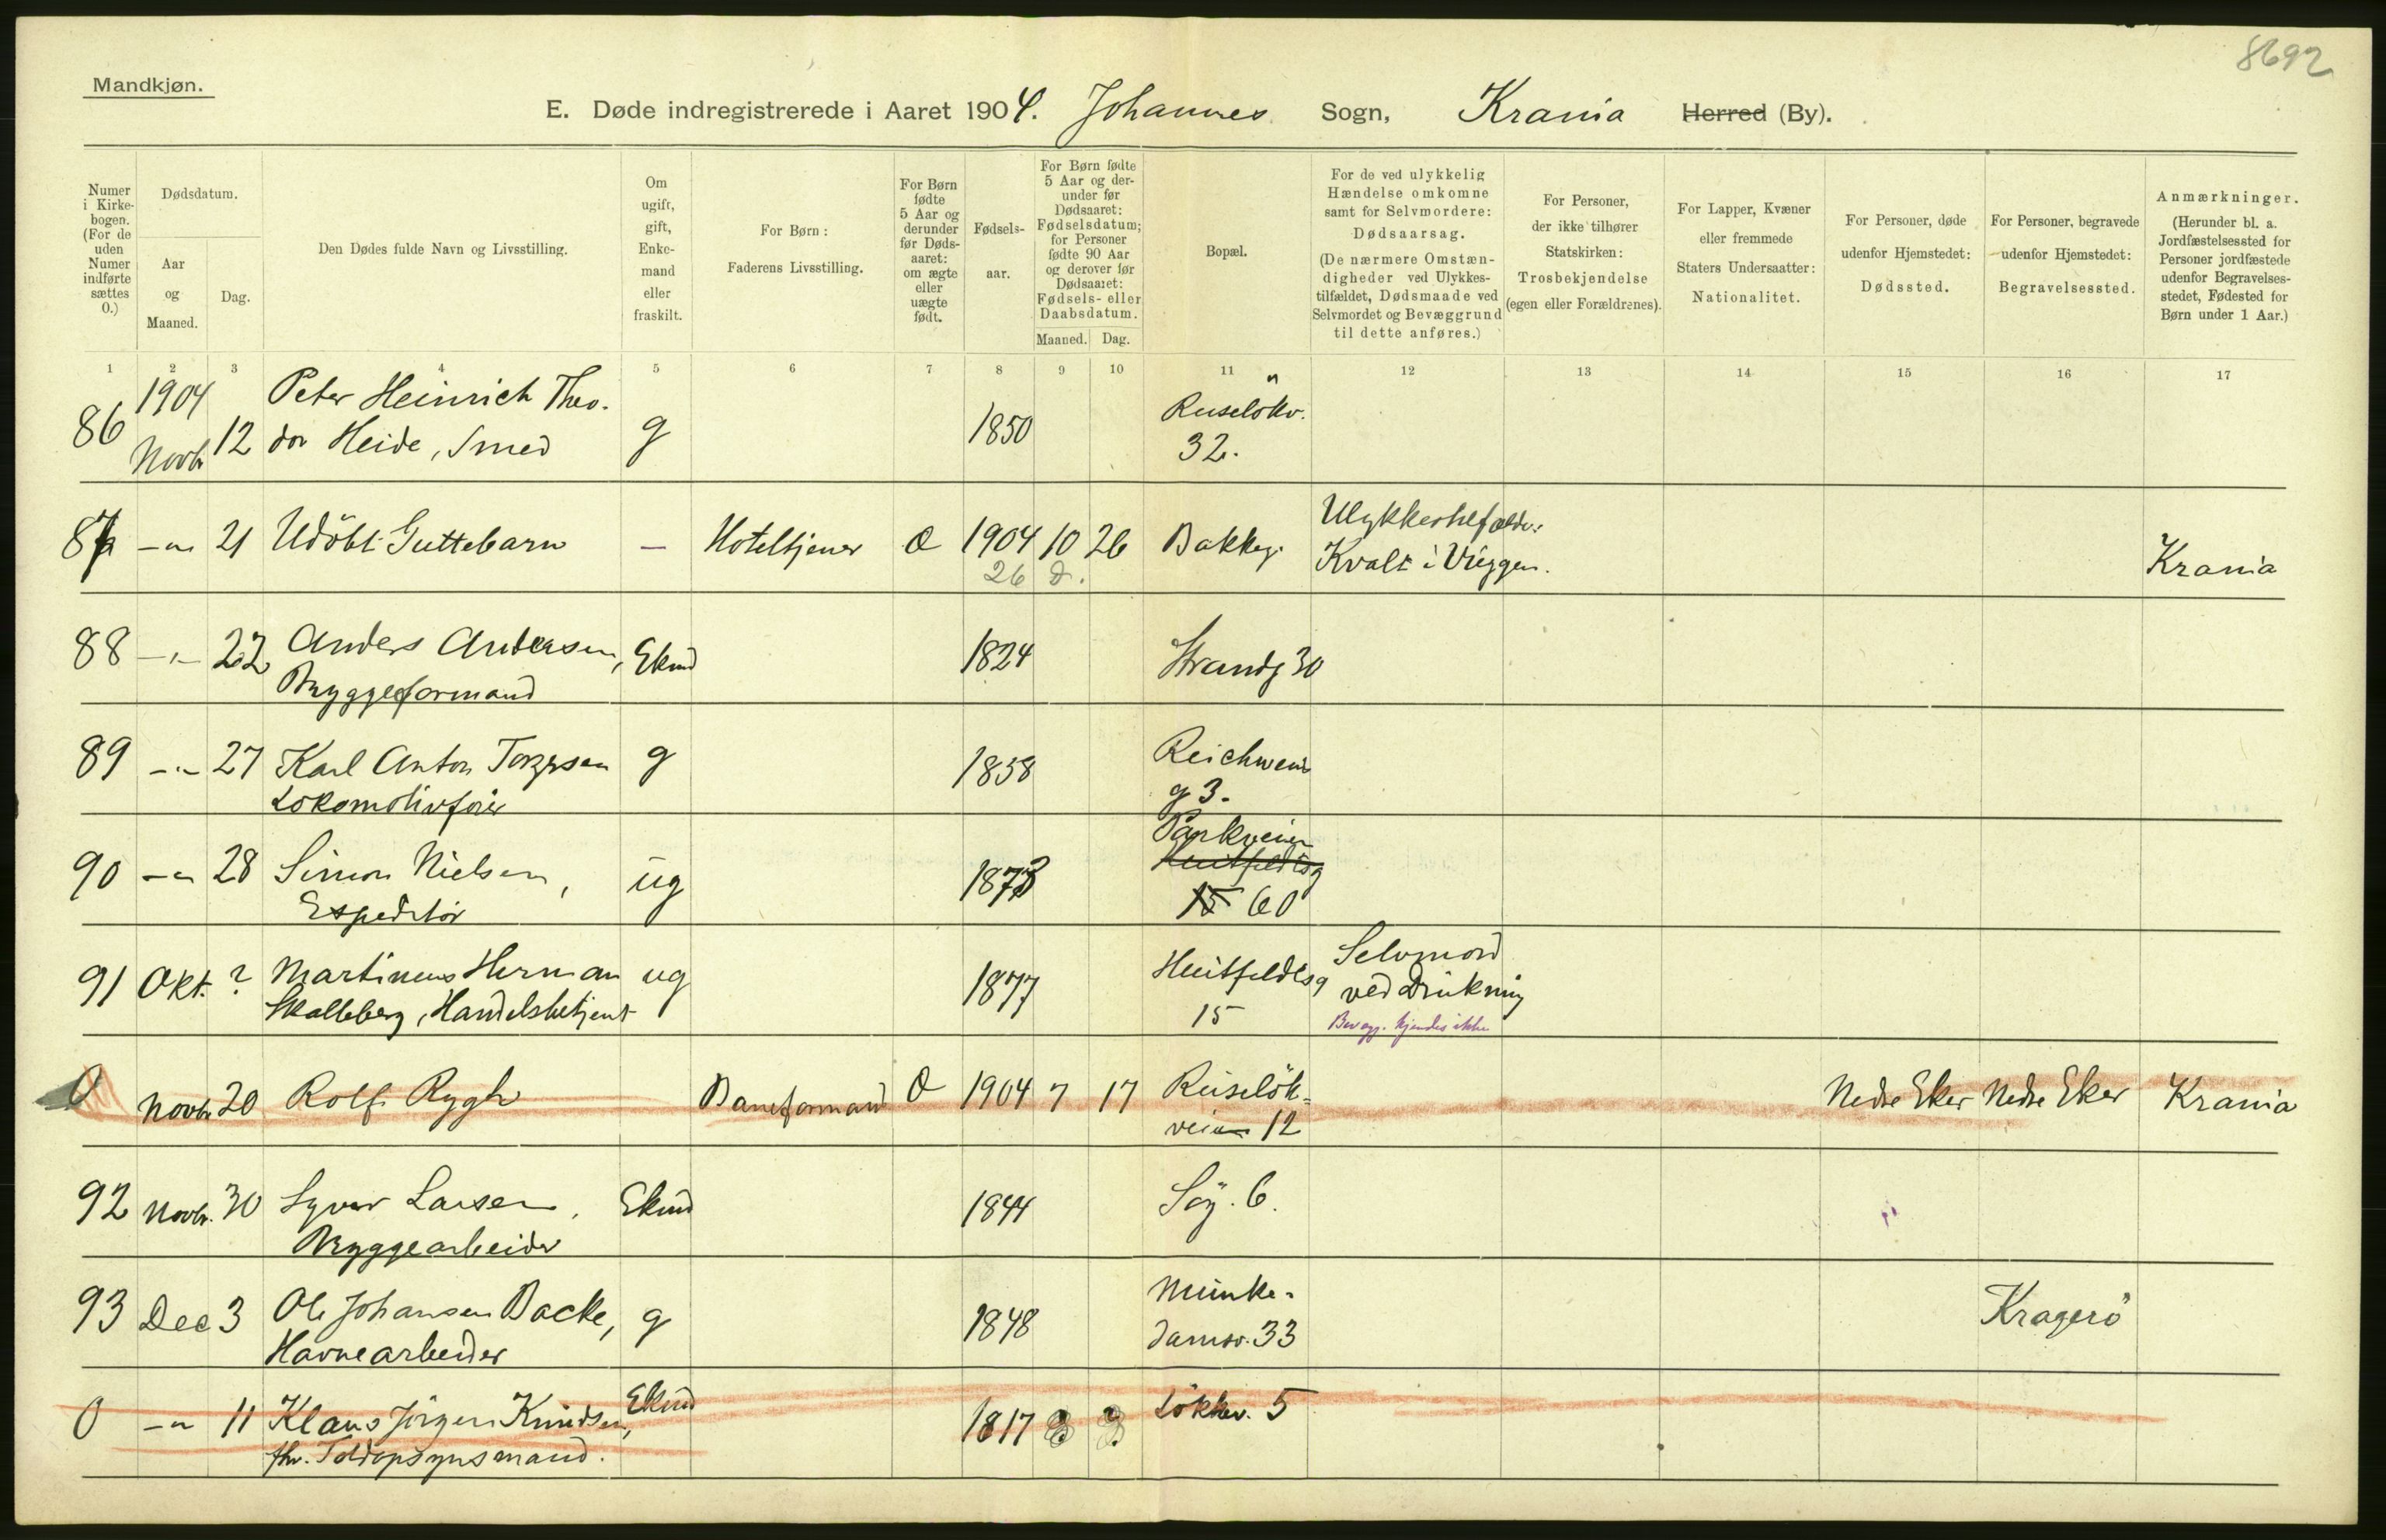 8692
Mandkjøn.
E. Døde indregistrerede i Aaret 1904. Johannes Sogn, Krania Herred (By).
Numer i Kirke-bogen. (For de uden Numer indførte sættes 0.)
Dødsdatum.
Aar og Maaned.
Dag.
Den Dødes fulde Navn og Livsstilling.
Om ugift, gift, Enke-mand eller fraskilt.
For Børn:
Faderens Livsstilling.
For Børn fødte 5 Aar og derunder før Døds-aaret: om ægte eller uægte født.
Fødsels-aar.
For Børn fødte 5 Aar og der-under før Dødsaaret: Fødselsdatum; for Personer fødte 90 Aar og derover før Dødsaaret: Fødsels- eller Daabsdatum.
Maaned. Dag.
Bopæl.
For de ved ulykkelig Hændelse omkomne samt for Selvmordere: Dødsaarsag.
(De nærmere Omstæn-digheder ved Ulykkes-tilfældet, Dødsmaade ved Selvmordet og Bevæggrund til dette anføres.)
For Personer, der ikke tilhører Statskirken: Trosbekjendelse (egen eller Forældrenes).
For Lapper, Kvæner eller fremmede Staters Undersaatter: Nationalitet.
For Personer, døde udenfor Hjemstedet: Dødssted.
For Personer, begravede udenfor Hjemstedet: Begravelsessted.
Anmærkninger.
(Herunder bl. a. Jordfæstelsessted for Personer jordfæstede udenfor Begravelses-stedet, Fødested for Børn under 1 Aar.)
1 2 3 4 5 6 7 8 9 10 11 12 13 14 15 16 17
1904 Peter Heinrich Theo- Ruseløkv.
86 Novb 12 dor Heide, Smed g 1850 32.
87 -"- 21 Udöbt Guttebarn — Hoteltjener Æ 1904 10 26 Bakkeg. Ulykkestilfælde: Kvalt i Vuggen. Krania
26 d.
88 -"- 22 Anders Andersen, Ekmd 1824 Strandg 30
Bryggeformand
89 -"- 27 Karl Anton Torgersen g 1858 Reichweins
Lokomotivfører g 3.
Parkveien
90 -"- 28 Simon Nielsen, ug 1873 Huitfeldtsg
Expeditør 15 60
91 Okt. ? Martinius Herman ug 1877 Huitfeldtsg Selvmord
Skalleberg, Handelsbetjent 15 ved Drukning
Bevægg. kjendes ikke
0 Novb 20 Rolf Rygh Baneformand Æ 1904 7 17 Ruseløk- Nedre Eker Nedre Eker Krania
veien 12
92 Novb. 30 Syver Larsen, Ekmd 1844 Søg. 6.
Bryggearbeider
93 Dec 3 Ole Johansen Backe, g 1848 Munke- Kragerø
Havnearbeider damsv. 33
0 -"- 11 Klaus Jörgen Knudsen, Ekmd 1817 Løkkev. 5
fhv. Toldopsynsmand.